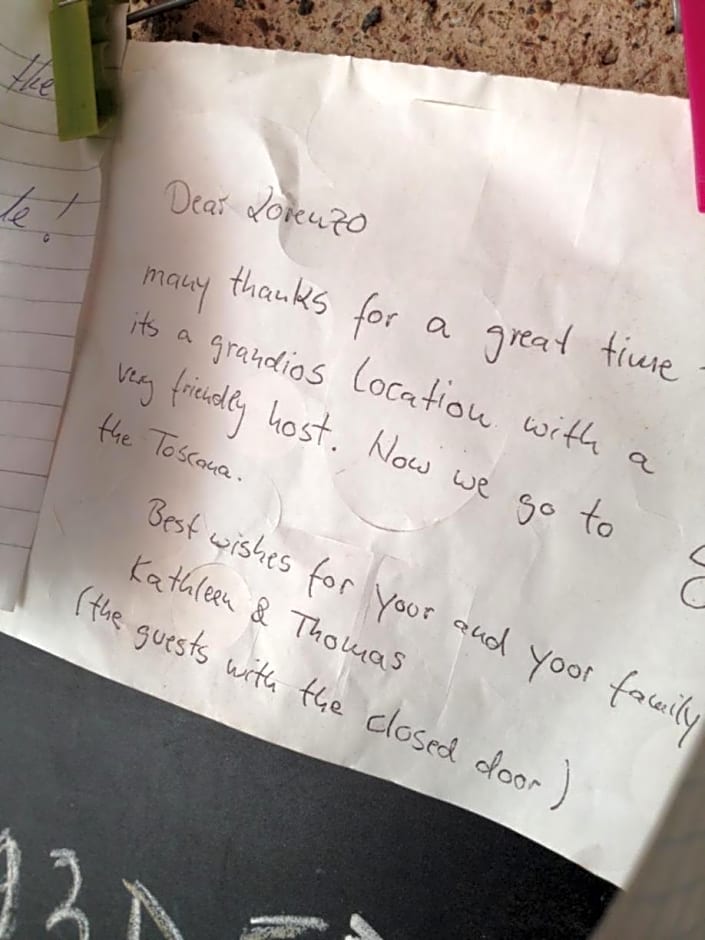 the
te!
Dear Lorenzo
many thanks for a great time -
its a grandios location with a
very friendly host. Now we go to
the Toscana.
Best wishes for yoor and yoor family
Kathleen & Thomas
(the guests with the closed door)